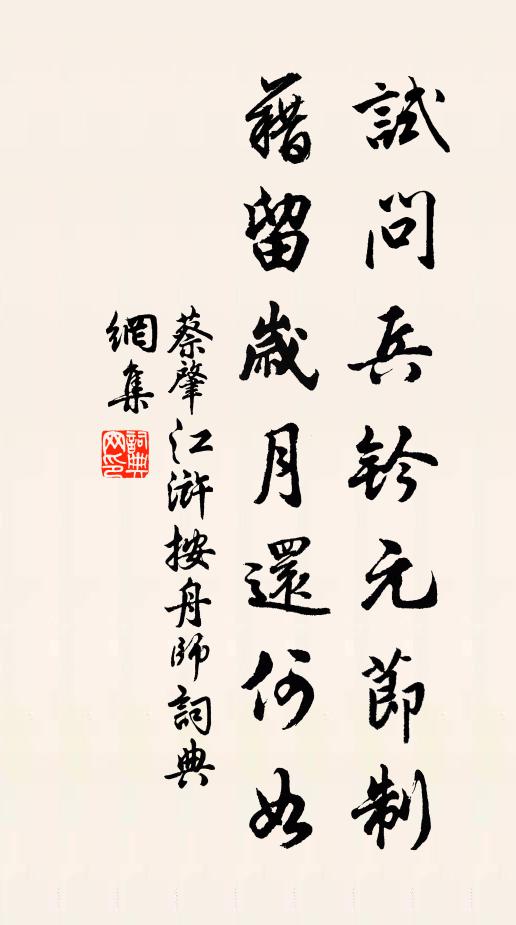 試問兵鈐元節制
藉留歲月還何如
蔡肇江滸按舟師詞典
網集
詞典網印